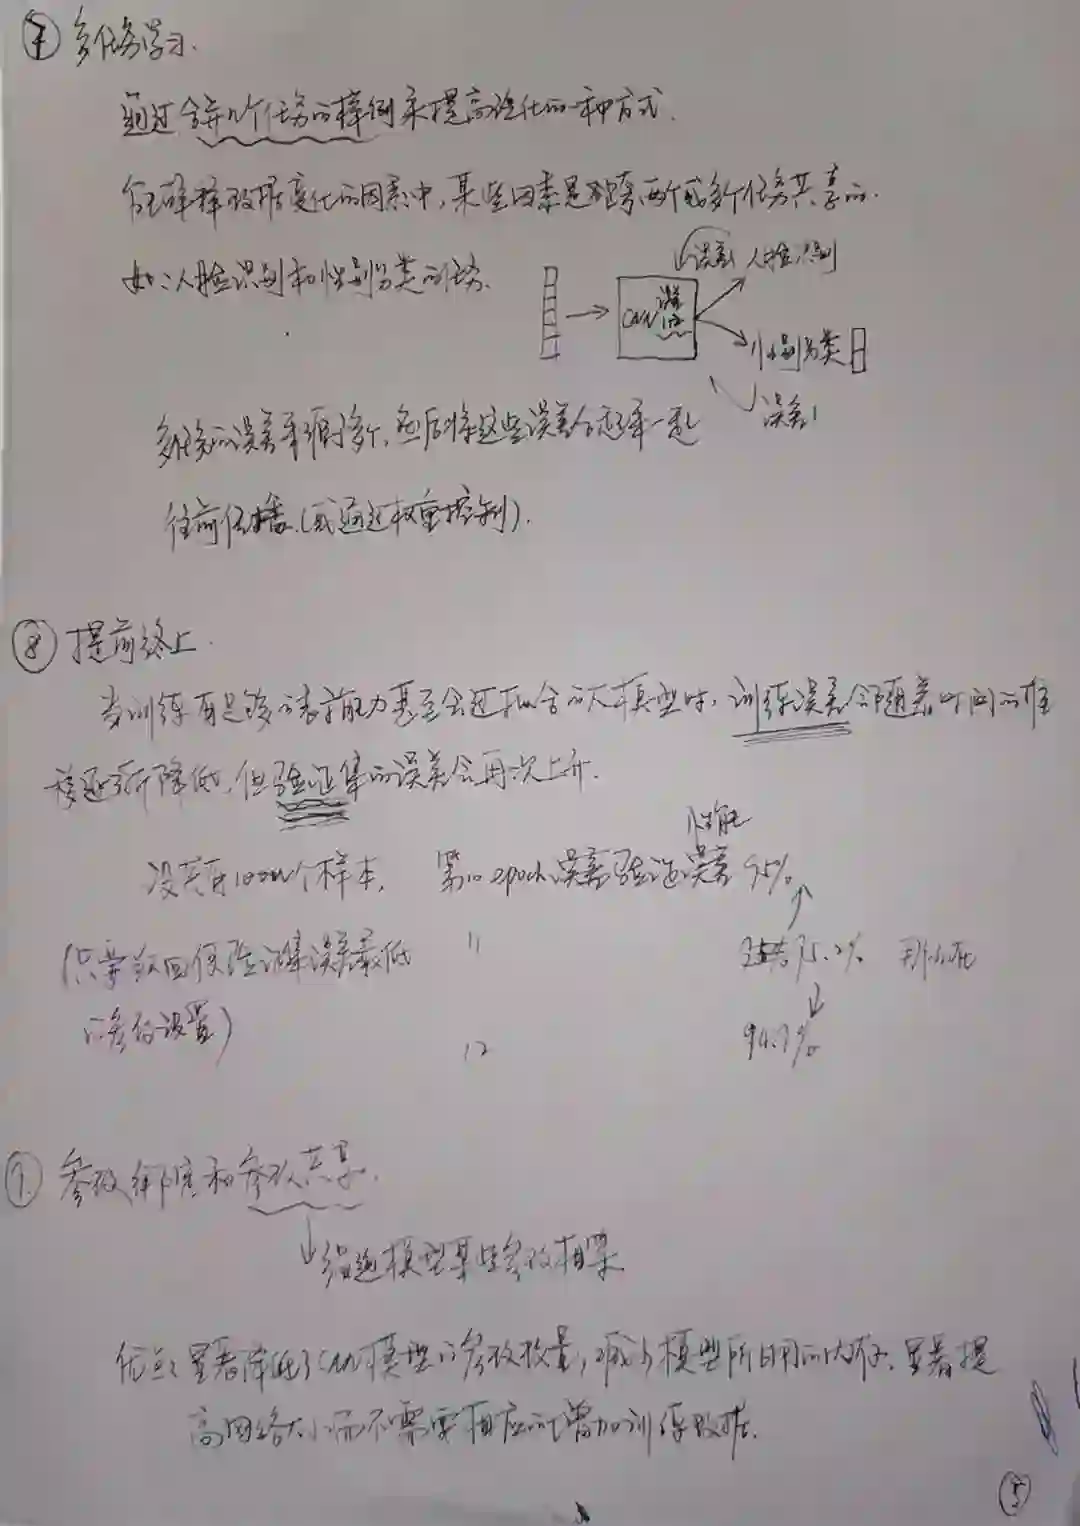 ⑦ 多任务学习.
通过合并几个任务的样例来提高泛化的一种方式.
在解释数据变化的因素中,某些因素是跨两个或多个任务共享的.
如:人脸识别和性别分类的任务.
误差 人脸识别
CNN
性别分类
误差
多任务的误差来源多个,然后将这些误差合起来一起
往前传播.(或通过权重控制).
⑧ 提前终止.
当训练有足够的表示能力甚至会过拟合的大模型时,训练误差会随着时间的推
移逐渐降低,但验证集的误差会再次上升.
性能
没共有100W个样本, 第10 epoch误差 验证误差 95%
(只要返回使验证集误差最低 11 95.2%
的参数设置)
12 94.7%
参数绑定和参数共享.
模型某些参数相等
优点:显著降低了CNN模型的参数数量,减少模型所占用的内存.显著提
高网络大小而不需要相应的增加训练数据.
⑤